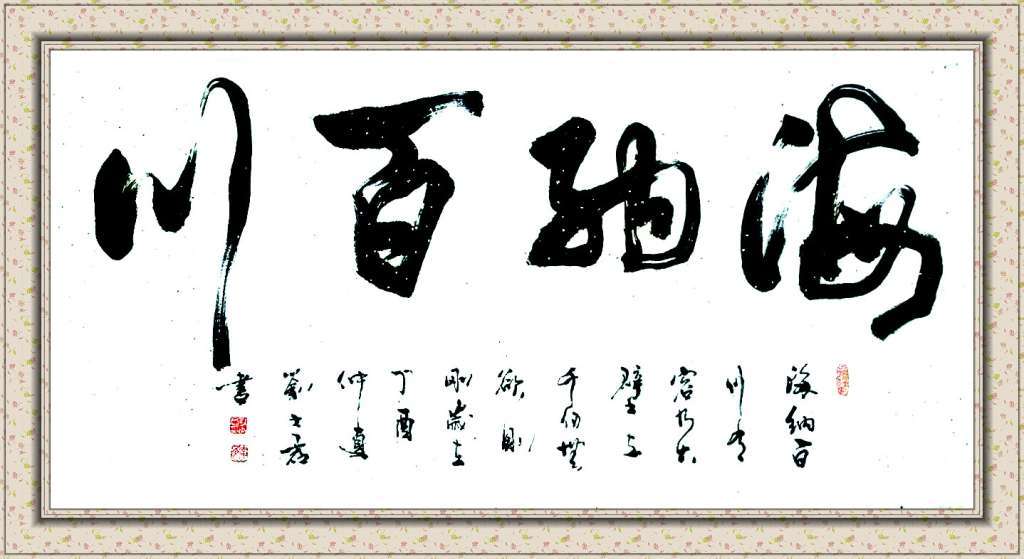 海納百川
海納百
川有
容乃大
壁立
千仞無
欲則
剛歲在
丁酉
仲夏
劉
書